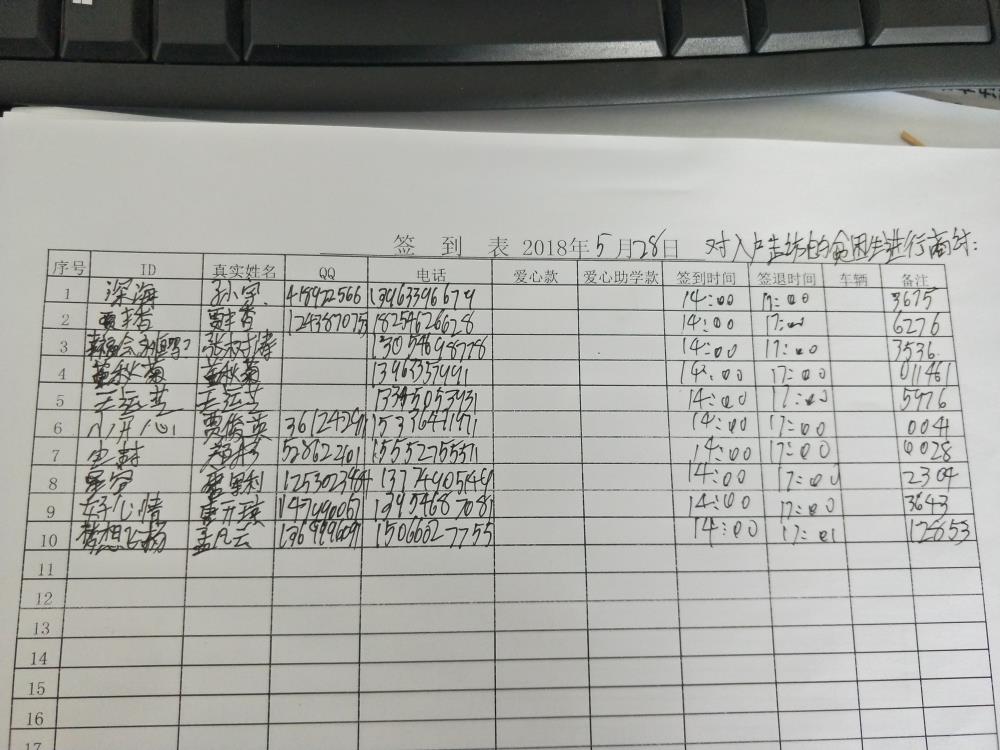 签 到 表 2018年5月28日 对入户走访的贫困生进行商讨:
序号 ID 真实姓名 QQ 电话 爱心款 爱心助学款 签到时间 签退时间 车辆 备注
1 深海 孙宇 418922566 13963396679 14:00 17:00 3675
2 贾丰香 贾丰香 1243870755 18254626628 14:00 17:00 6276
3 13054698778 14:00 17:00 3536
4 董秋菊 董秋菊 14:00 17:00 011461
5 王运芝 王运芝 14:00 17:00 5976
6 小开心 贾俊英 14:00 17:00 0041
7 528622401 15552755371 14:00 17:00 0028
8 14:00 17:00 2304
9 好心情 13954687081 14:00 17:00 3643
10 梦想飞扬 孟凡云 15066027755 14:00 17:01 12853
11
12
13
14
15
16
17